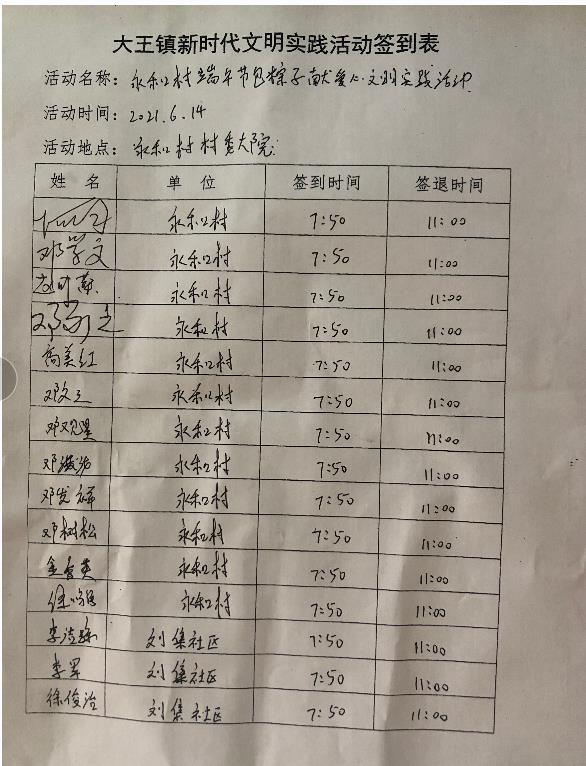 大王镇新时代文明实践活动签到表
活动名称：永和村端午节包粽子献爱心文明实践活动
活动时间：2021.6.14
活动地点：永和村村委大院
姓名 单位 签到时间 签退时间
永和村 7:50 11:00
邓学文 永和村 7:50 11:00
永和村 7:50 11:00
邓 永和村 7:50 11:00
高美红 永和村 7:50 11:00
邓文 永和村 7:50 11:00
邓 永和村 7:50 11:00
邓 永和村 7:50 11:00
邓发 永和村 7:50 11:00
邓树松 永和村 7:50 11:00
金香英 永和村 7:50 11:00
永和村 7:50 11:00
李 刘集社区 7:50 11:00
李军 刘集社区 7:50 11:00
徐俊治 刘集社区 7:50 11:00